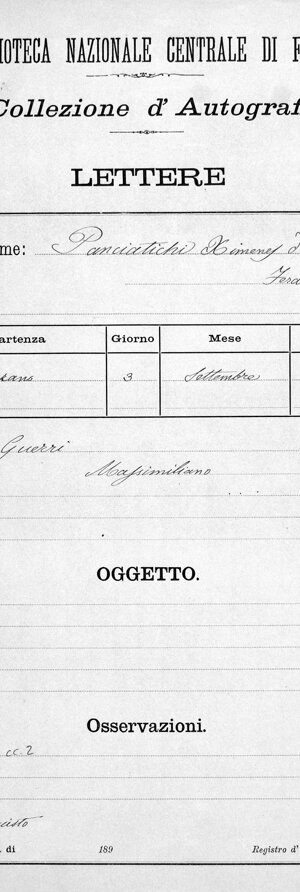 IOTECA NAZIONALE CENTRALE DI F
Collezione d' Autograf
LETTERE
me: Panciatichi Ximenes
Ferd
artenza Giorno Mese
3 Settembre
Guerri
Massimiliano
OGGETTO.
Osservazioni.
cc. 2
. di 189 Registro d'